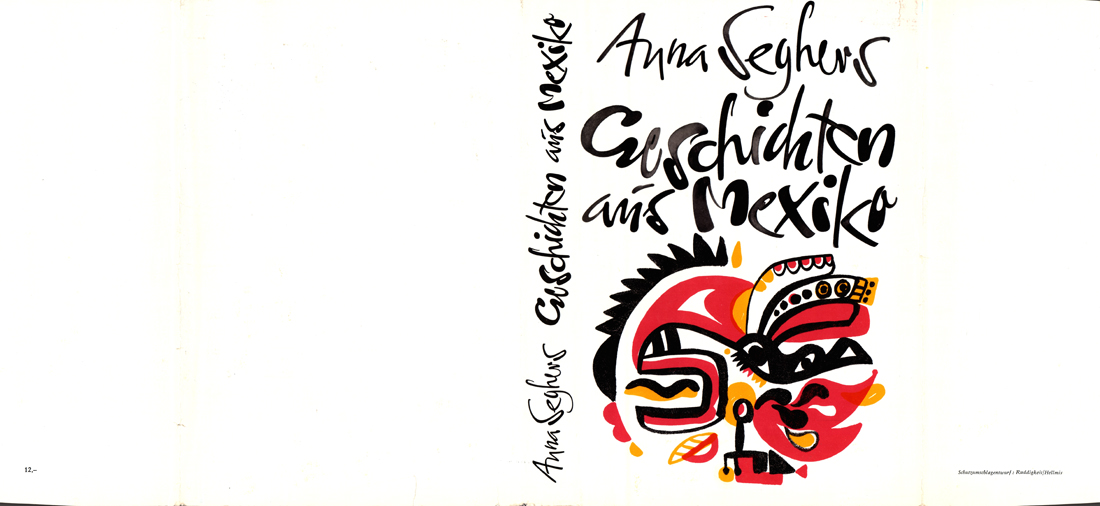 12,–
Anna Seghers Geschichten aus Mexiko
Anna Seghers
Geschichten
aus Mexiko
Schutzumschlagentwurf : Raddigkeit/Hellmis